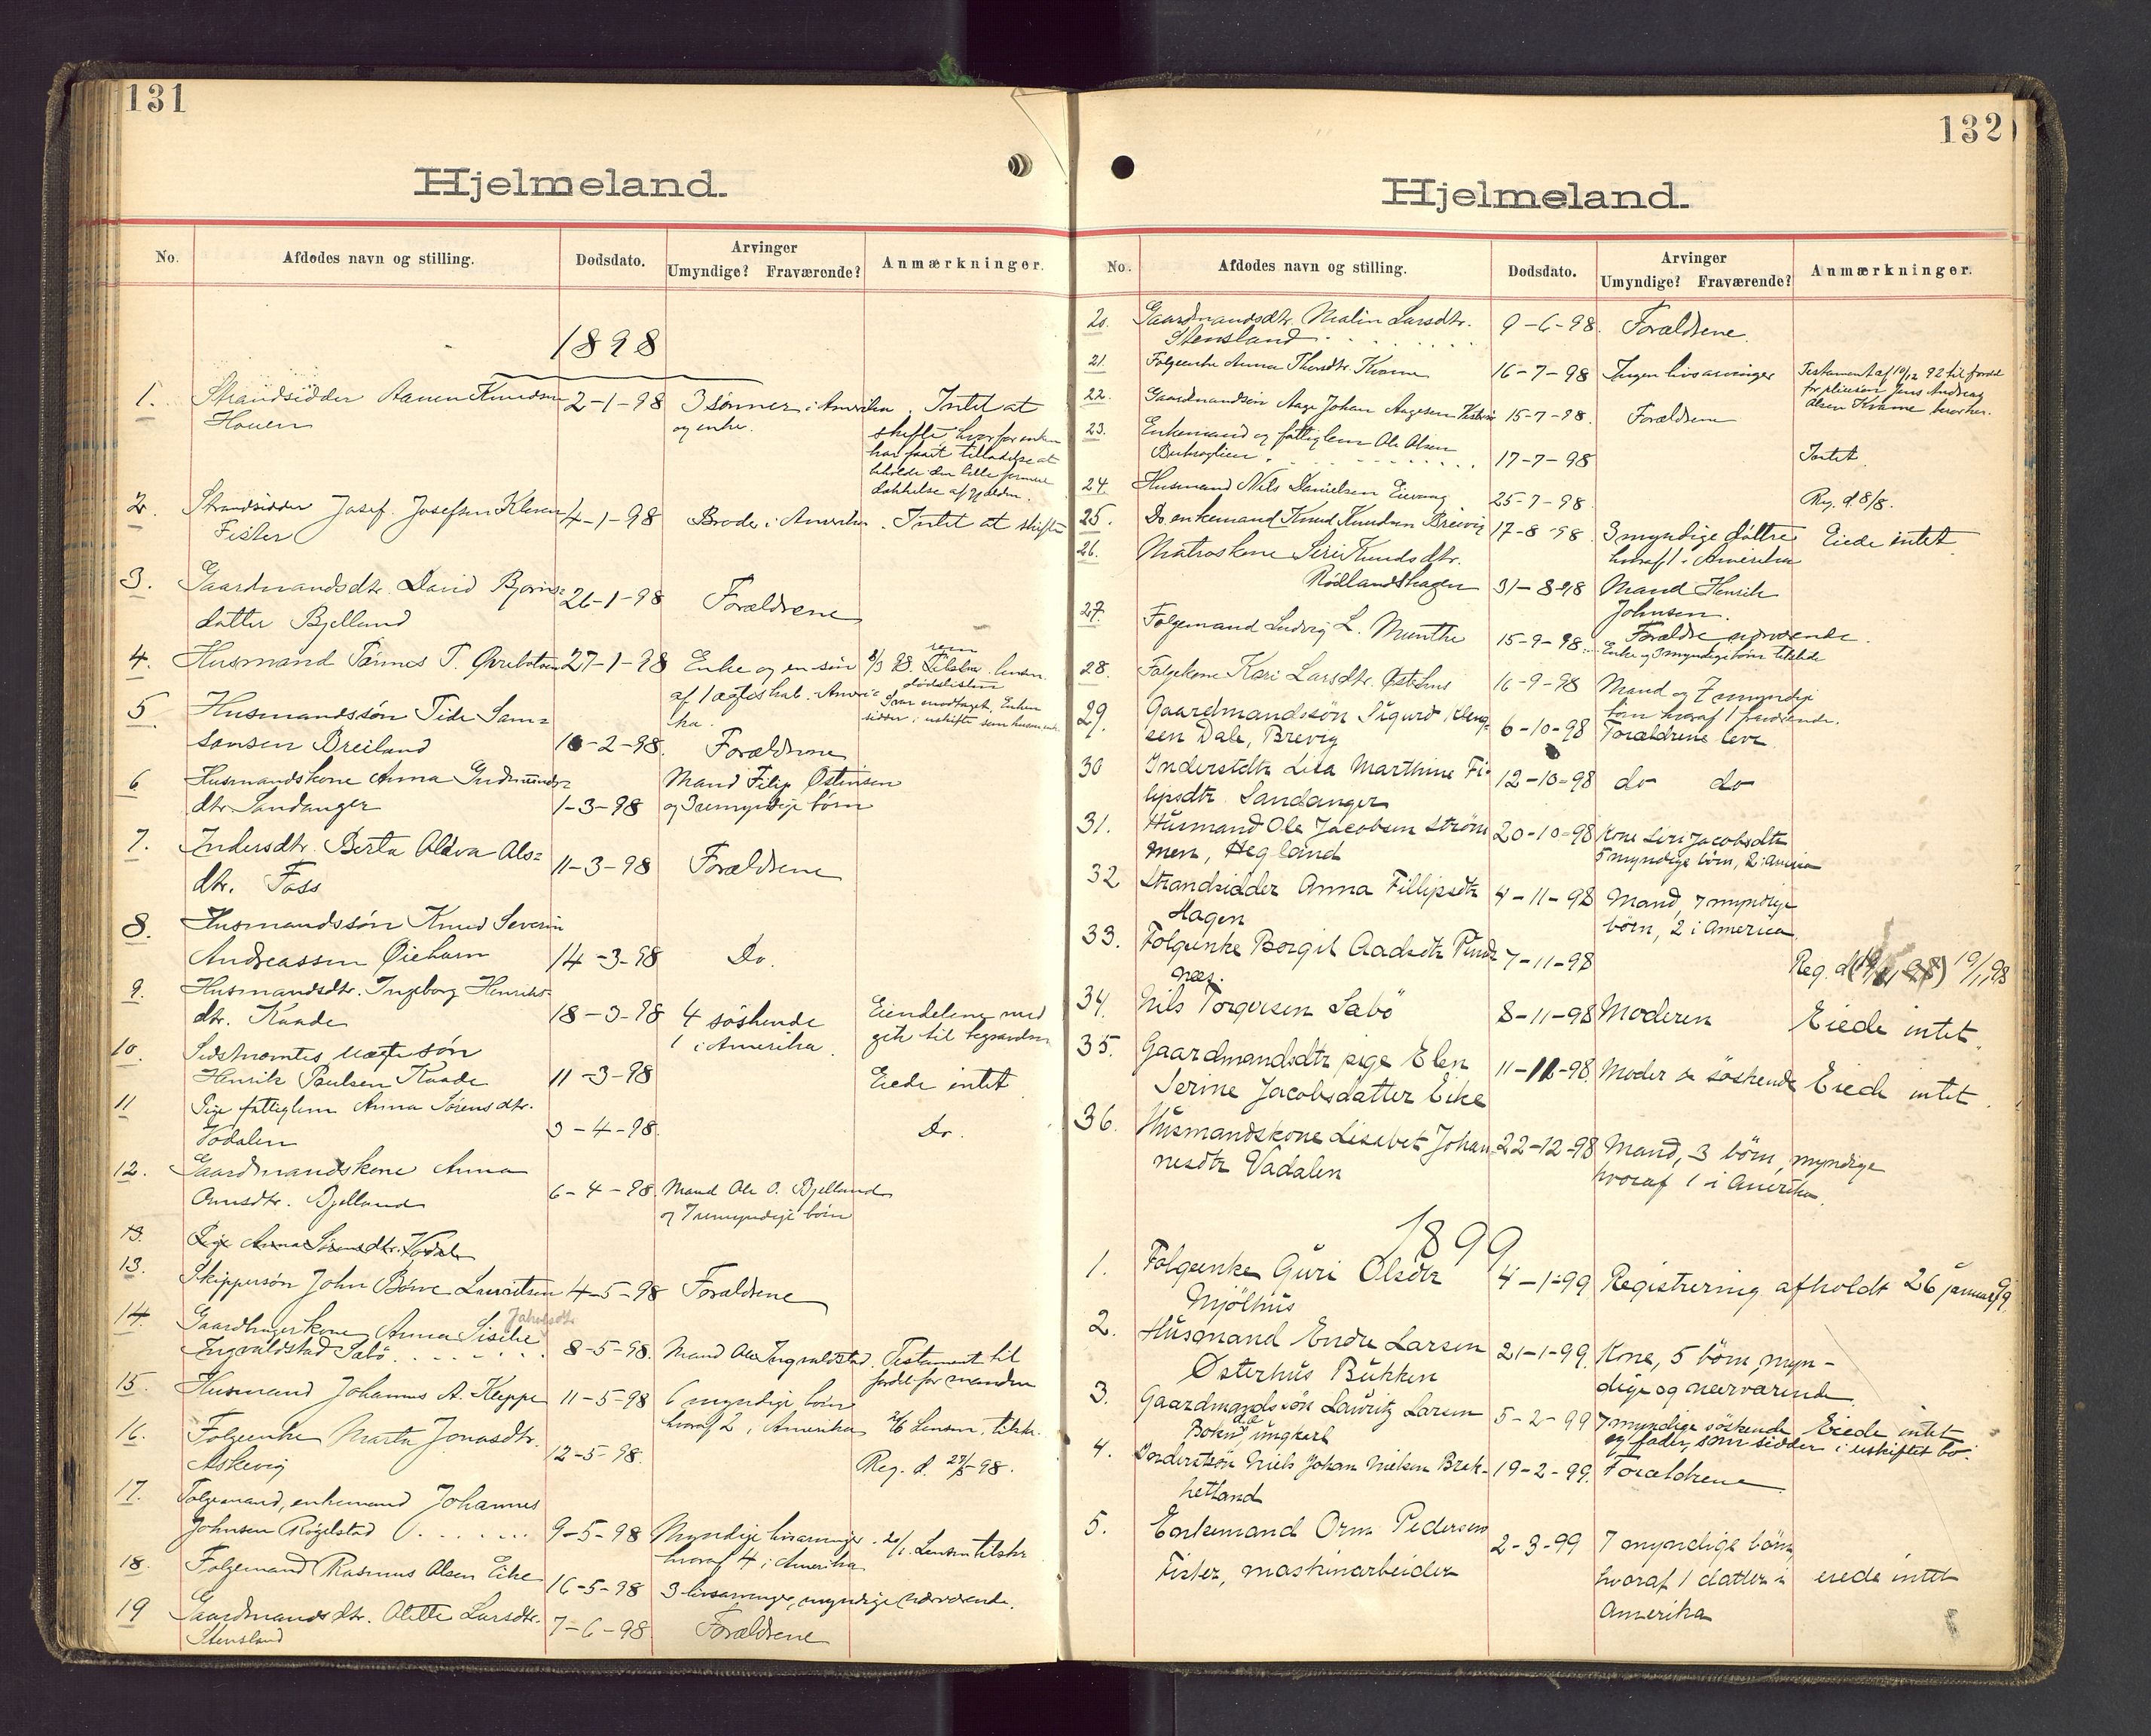 131
Hjelmeland.
No.
Afdødes navn og stilling.
Dødsdato.
Arvinger
Umyndige? Fraværende?
Anmærkninger.
1898
1. Strandsidder Aanen Knudsen 2-1-98 3 sønner i Amerika. Intet at
Houen og enke. skifte hvorfor enken
har faaet tilladelse at
beholde den lille formue
dækkelse af gjelden.
2. Strandsidder Josef Josefsen Kleven 4-1-98 Broder i Amerika. Intet at skifte
Fister
3. Gaardmandsdtr. David Bjørns=
26-1-98 Forældrene
datter Bjelland
4. Husmand Tønnes T. 27-1-98 Enke og en søn
af 1 ægteskab. Amerika.
5. Husmandssøn Tide Sam=
sonsen Breiland 10-2-98. Forældrene
6 Husmandskone Anna Gudmunds= Mand Filip Østensen
dtr. Sandanger 1-3-98 og 3 umyndige børn
7. Inderstdtr. Berta Oldva Ols=
11-3-98 Forældrene
dtr. Foss
8. Husmandssøn Knud Severin
Andreassen Øiehavn 14-3-98 Do.
9. Husmandsdtr. Ingeborg Henriks=
dtr. Kaade 18-3-98 4 søskende Eiendelene med
1 i Amerika. gik til begravelsen
10. Sidstnævntes uægte søn
Henrik Paulsen Kaade 11-3-98 Eiede intet
11 Pige fattiglem Anna Sørensdtr.
Vodalen 3-4-98. Do.
12. Gaardmandskone Anna
Anusdtr. Bjelland 6-4-98. Mand Ole O. Bjelland
og 7 umyndige børn
13. Pige Anna Sørensdtr. Vodalen
13. Skippersøn John Børve Lauritsen 4-5-98 Forældrene
14. Gaardbrugerkone Anna Siselie Jakobsdtr
Ingvaldstad Sabø 8-5-98. Mand Ole Ingvaldstad. Testament til
fordel for manden
15. Husmand Johannes A. Kleppe 11-5-98 6 myndige børn
hvoraf 2 i Amerika Lensm. tilskr.
16. Folgeenke Marta Jonasdtr.
Askevig 12-5-98. Reg. d. 27/5-98.
17. Folgemand, enkemand Johannes
Johnsen Røgelstad 9-5-98 Myndige livsarvinger Lensm tilskr
hvoraf 4 i Amerika
18. Folgemand Rasmus Olsen Eike 16-5-98 3 livsarvinger, myndige nærværende.
19 Gaardmandsdtr. Olette Larsdtr.
Stensland 7-6-98 Forældrene
132
Hjelmeland.
No.
Afdødes navn og stilling.
Dødsdato.
Arvinger
Umyndige? Fraværende?
Anmærkninger.
20. Gaardmandsdtr. Malin Larsdtr. 9-6-98. Forældrene.
Stensland
21. Folgeenke Anna Thordtr. Kvame 16-7-98 Ingen livsarvinger Testament af 10/12 92 til fordel
for pleiesøn Jens Andreas
Olsen Kvame
22. Gaardmandsøn Aage Johan Aagesen 15-7-98. Forældrene
23. Enkemand og fattiglem Ole Olsen
17-7-98 Intet
24. Husmand Nils Danielsen 25-7-98. Reg. d. 8/8.
25. Do. enkemand Knud Knudsen Breivig 17-8-98. 3 myndige døttre Eiede intet
hvoraf 1 i Amerika
26. Matroskone Siri Knudsdtr.
Rødlandshagen 31-8-98 Mand Henrik
Johnsen.
27. Folgemand Ludvig L. Munthe 15-9-98. Forældre nærværende.
Enke og 3 myndige børn
28. Folgekone Kari Larsdtr. Østhus 16-9-98 Mand og 7 umyndige
børn hvoraf 1 fraværende.
29. Gaardmandssøn Sigurd
sen Dale, Brevig 6-10-98 Forældrene leve
30 Inderstdtr Lisa Marthine Fi-
lipsdtr. Sandanger 12-10-98 do do
31. Husmand Ole Jacobsen Strøm 20-10-98 Kone Siri Jacobsdtr
men, Hegland 5 myndige børn, 2 i America
32 Strandsidder Anna Fillipsdtr 4-11-98 Mand, 7 myndige
Hagen børn, 2 i America.
33. Folgeenke Borgil Aadsdtr Tund
næs. 7-11-98 Reg. d 19/11 98
34. Nils Torgersen Sabø 8-11-98 Moderen Eiede intet.
35. Gaardmandsdtr pige Elen
Serine Jacobsdatter Eike 11-11-98. Moder & søskende Eiede intet.
36. Husmandskone Lisabet Johan 22-12-98 Mand, 3 børn, myndige
nesdtr Vadalen hvoraf 1 i Amerika.
1899
1. Folgeenke Guri Olsdtr 4-1-99 Registrering afholdt 26 januar 99.
Mjølhus
2. Husmand Endre Larsen 21-1-99. Kone, 5 børn, myn-
Østerhus Bukken dige og nærværende.
3. Gaardmandssøn Lauritz Larsen 5-2-99 7 myndige søskende Eiede intet
ungkarl og fader, som sidder i uskiftet bo.
4. Inderstsøn Niels Johan Nielsen Bræk- 19-2-99. Forældrene
hetland
5. Enkemand Orm Pedersen 2-3-99 7 myndige børn,
Fister, maskinarbeider hvoraf 1 datter i eiede intet
Amerika